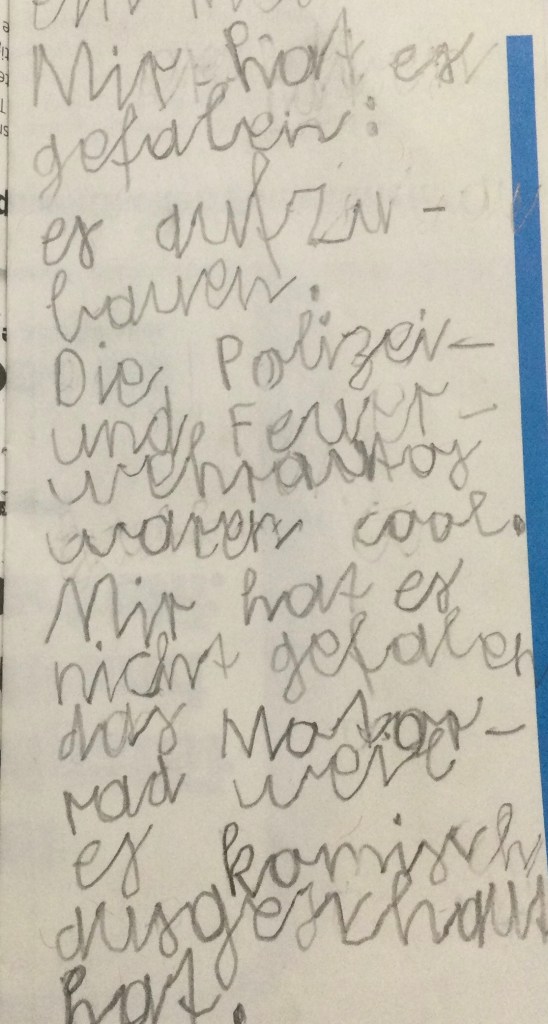 Mir hat es
gefalen:
es aufzu-
bauen.
Die Polizei-
und Feuer-
wehrautos
waren cool.
Mir hat es
nicht gefalen
das Motor-
rad weil
es komisch
ausgeschaut
hat.